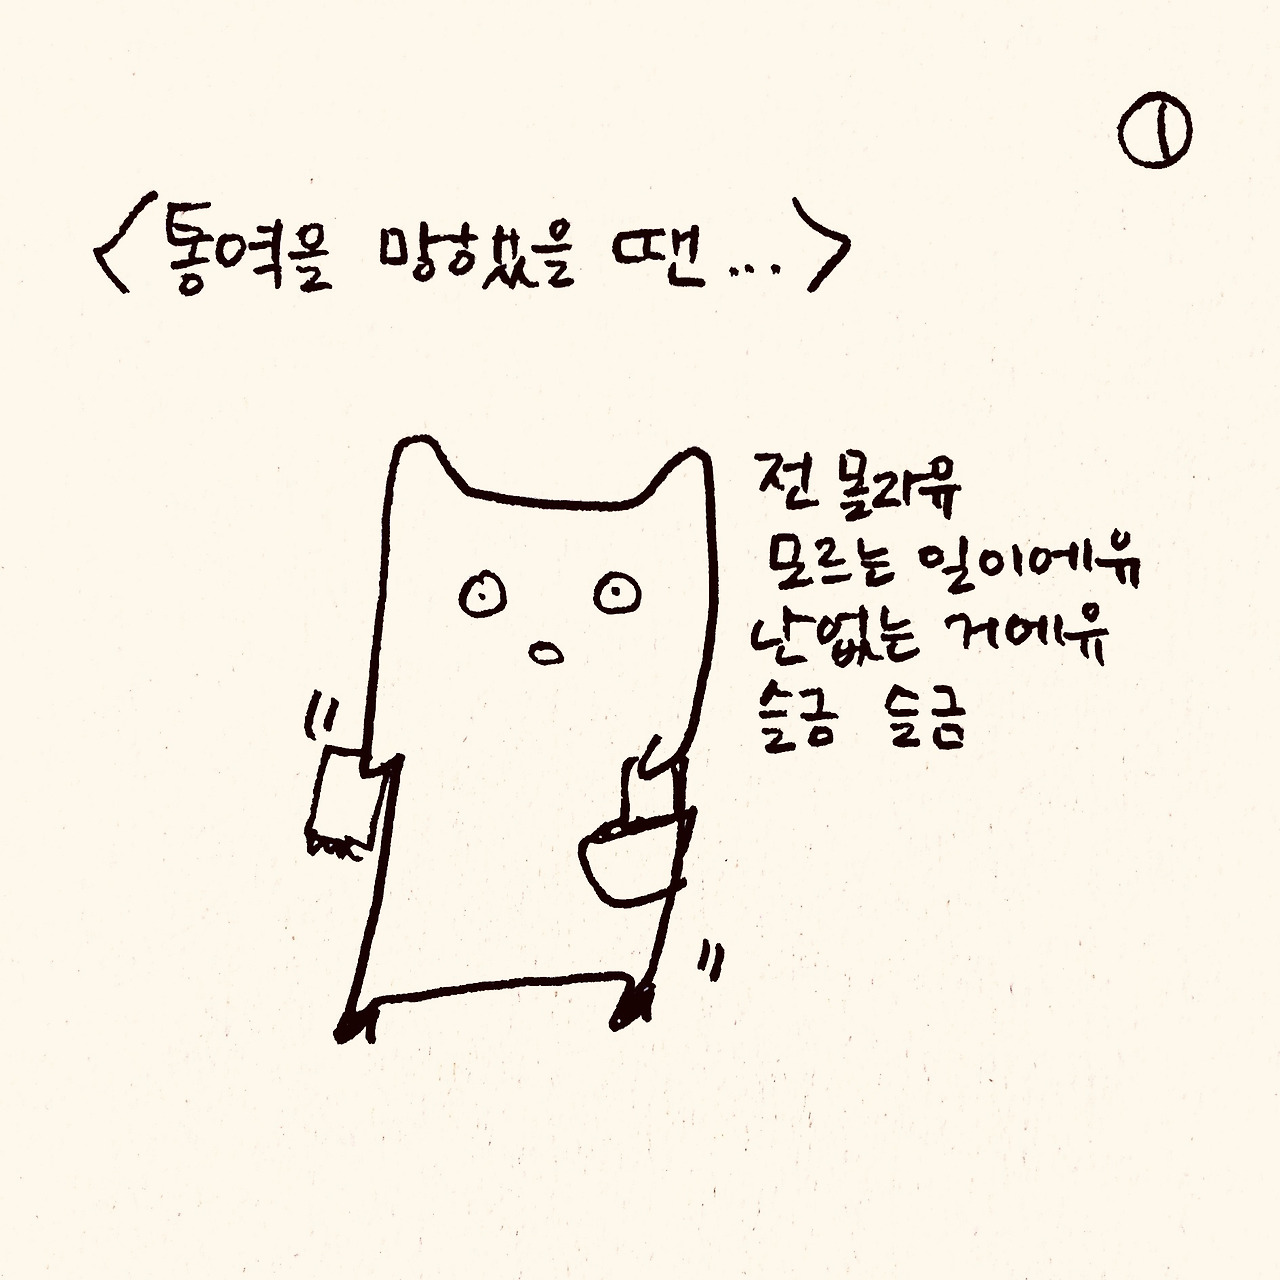 ①
<통역을 망했을 땐...>
전 몰라유
모르는 일이에유
난 없는 거에유
슬금 슬금